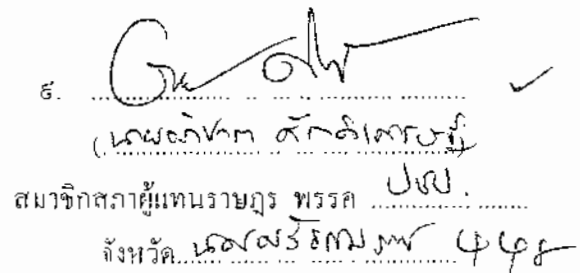 ๕.
(นายอภิชาต ศักดิเศรษฐ์)
สมาชิกสภาผู้แทนราษฎร พรรค ปชป.
จังหวัด นครศรีธรรมราช